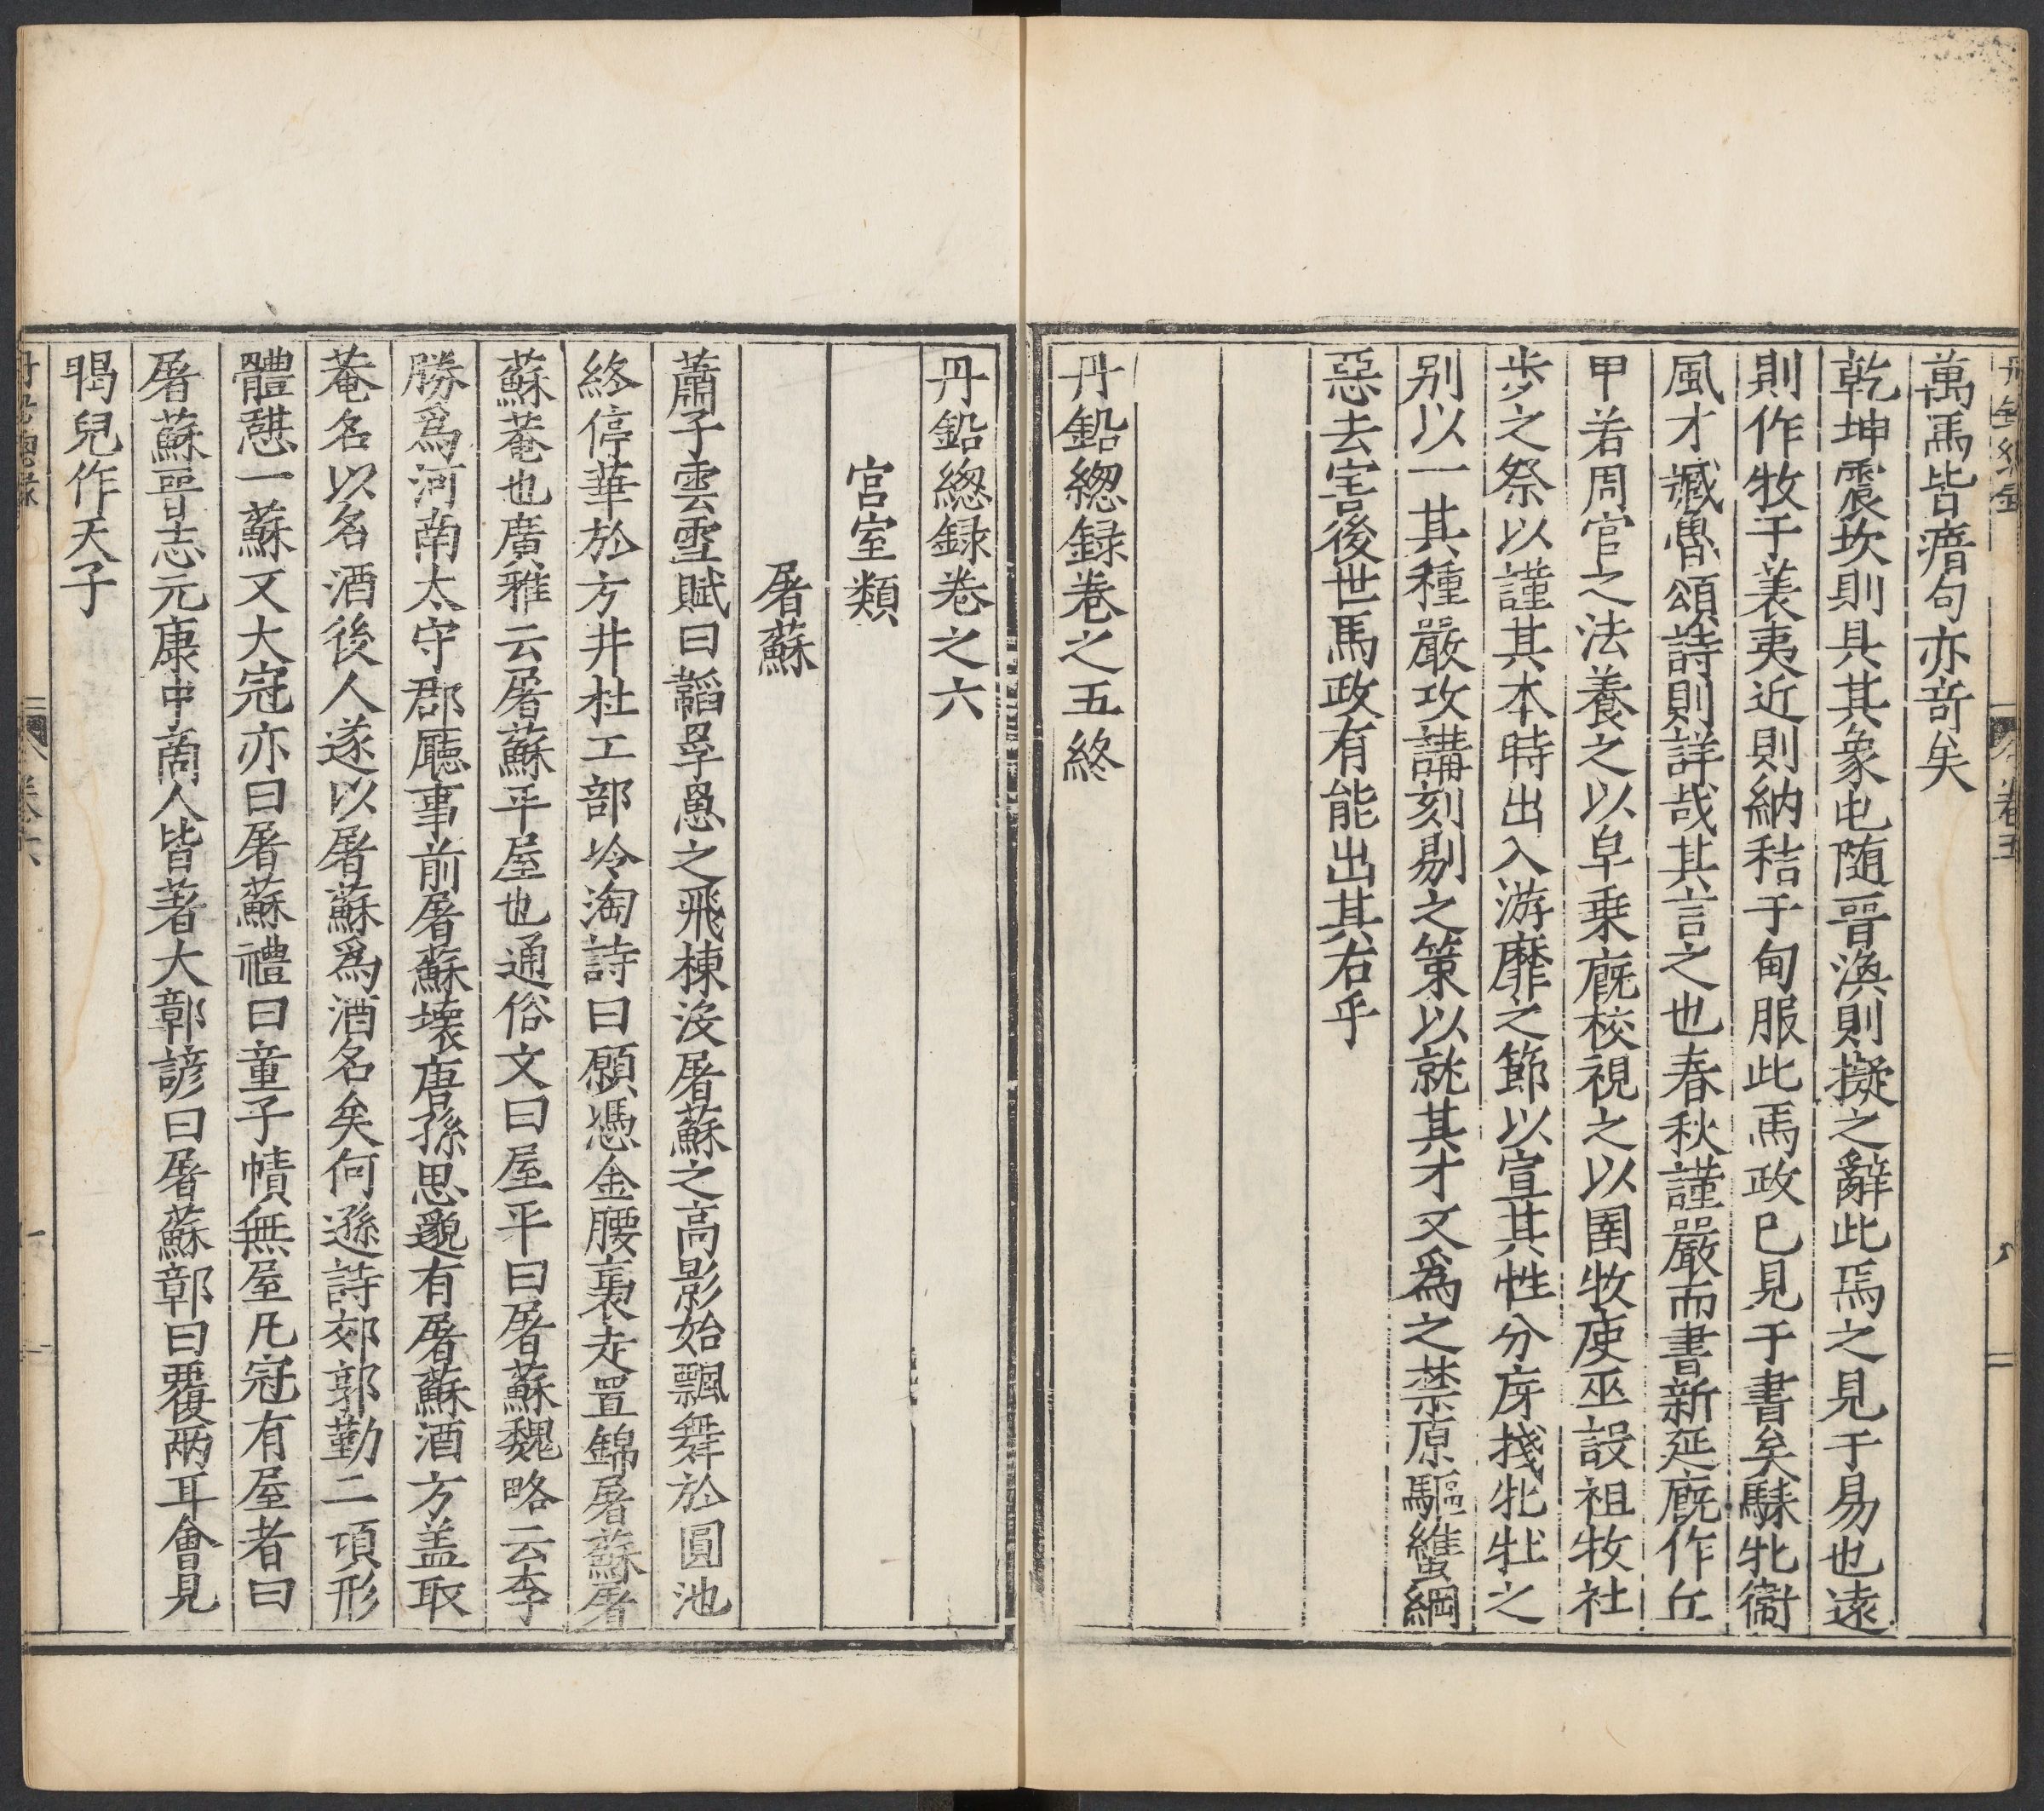 萬馬皆瘖句亦竒矣
乾坤震坎則具其象屯随晉渙則擬之辭此馬之見于易也遠
則作牧于萊夷近則納秸于甸服此馬政已見于書矣騋牝衞
風才臧魯頌詩則詳哉其言之也春秋謹嚴而書新延廐作丘
甲若周官之法養之以皁乗廐校視之以圉牧使巫設祖牧社
步之祭以謹其本時出入游靡之節以宣其性分房棧牝牡之
别以一其種嚴攻講刻剔之策以就其才又爲之禁原驅蠵綱
惡去害後世馬政有能出其右乎
丹鉛緫録卷之五終
丹鉛緫録卷之六
宫室類
屠蘇
蕭子雲雪賦曰韜罘罳之飛棟沒屠蘇之高影始飄舞於圓池
終停華於方井杜工部冷淘詩曰願憑金騕褭走置錦屠蘇屠
蘇菴也廣雅云屠蘇平屋也通俗文曰屋平曰屠蘇魏略云李
勝爲河南太守郡廳事前屠蘇壊唐孫思邈有屠蘇酒方盖取
菴名以名酒後人遂以屠蘇爲酒名矣何遜詩郊郭勤二頃形
體憇一蘇又大冠亦曰屠蘇禮曰童子幘無屋凡冠有屋者曰
屠蘇晉志元康中商人皆著大鄣諺曰屠蘇鄣曰覆兩耳會見
瞎兒作天子